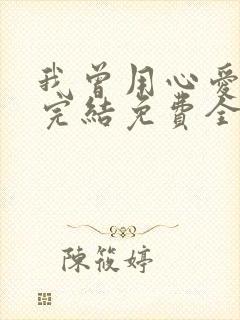 我曾用心愛
完結免費全
陳筱婷